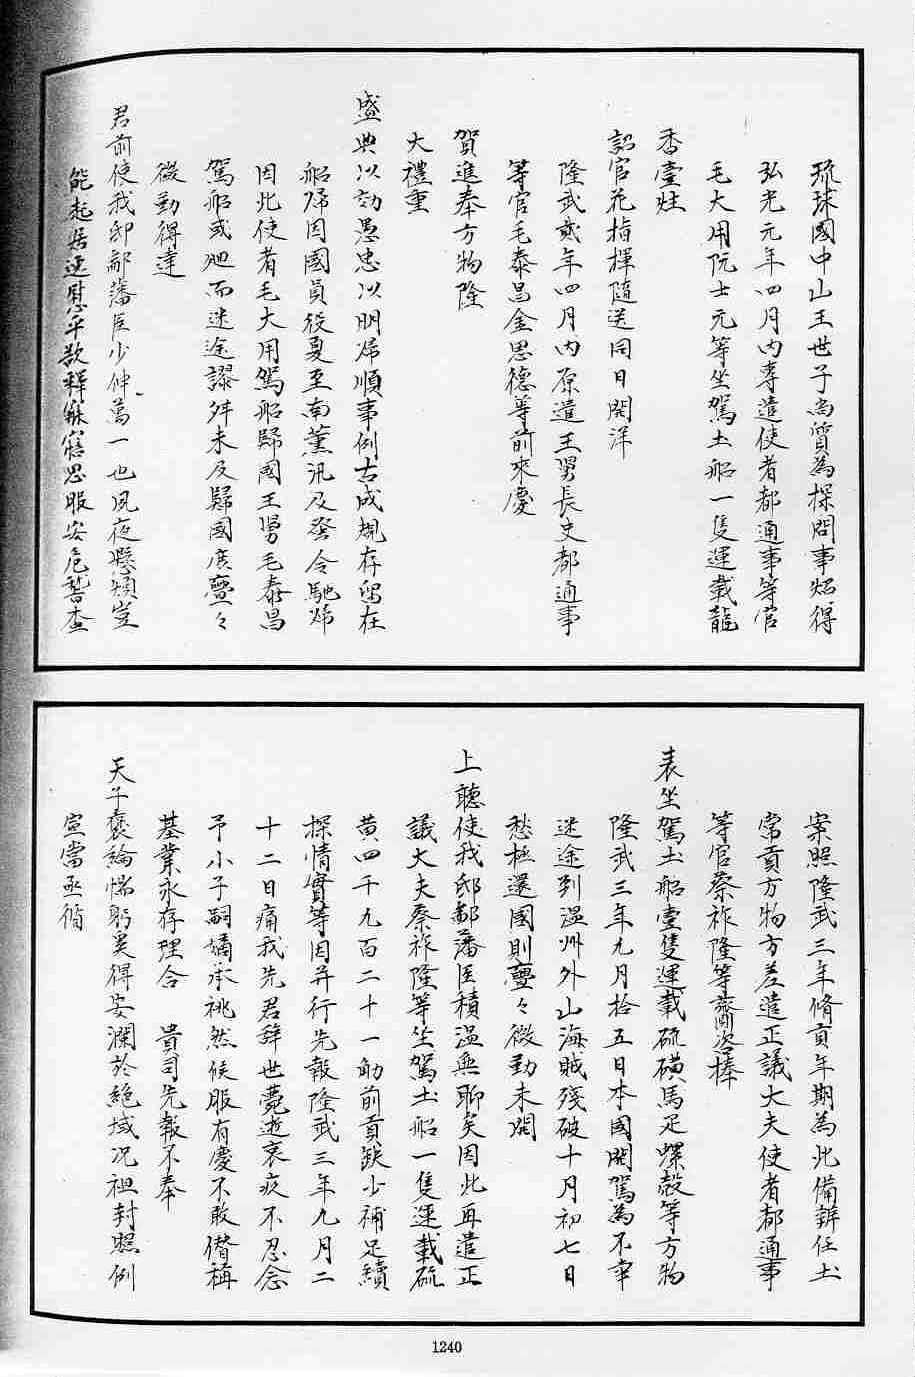 琉球國中山王世子尚質為探問事炤得
弘光元年四月內專遣使者都通事等官
毛大用阮士元等坐駕土船一隻運載龍
香壹炷
詔官花指揮隨送同日開洋
隆武貳年四月內原遣王舅長史都通事
等官毛泰昌金思德等前來慶
賀進奉方物隆
大禮重
盛典以効愚忠以明歸順事例古成規存留在
船歸因國員役夏至南薰汛及發令馳歸
因此使者毛大用駕船歸國王舅毛泰昌
駕船或迿而迷途謬舛未及歸國度亹々
微勤得達
君前使我邸鄙藩臣少伸萬一也夙夜懸煩豈
能起居逆慰乎歎釋寐寤思服安危誓查
案照隆武三年脩貢年期為此備辦任土
常貢方物方差遣正議大夫使者都通事
等官蔡祚隆等齎咨捧
表坐駕土船壹隻運載硫磺馬疋螺殼等方物
隆武三年九月拾五日本國開駕為不幸
迷途到溫州外山海賊殘破十月初七日
愁極還國則亹々微勤未聞
上聽使我邸鄙藩臣積溫無聊矣因此再遣正
議大夫蔡祚隆等坐駕土船一隻運載硫
黃四千九百二十一觔前貢缺少補足續
探情實等因并行先報隆武三年九月二
十二日痛我先君辞世薨逝哀疚不忍念
予小子嗣嫡承祧然候服有慶不敢僭稱
基業永存理合　貴司先報不奉
天子褒綸惕躬奚得安瀾於絕域況祖封照例
宣當亟循
1240